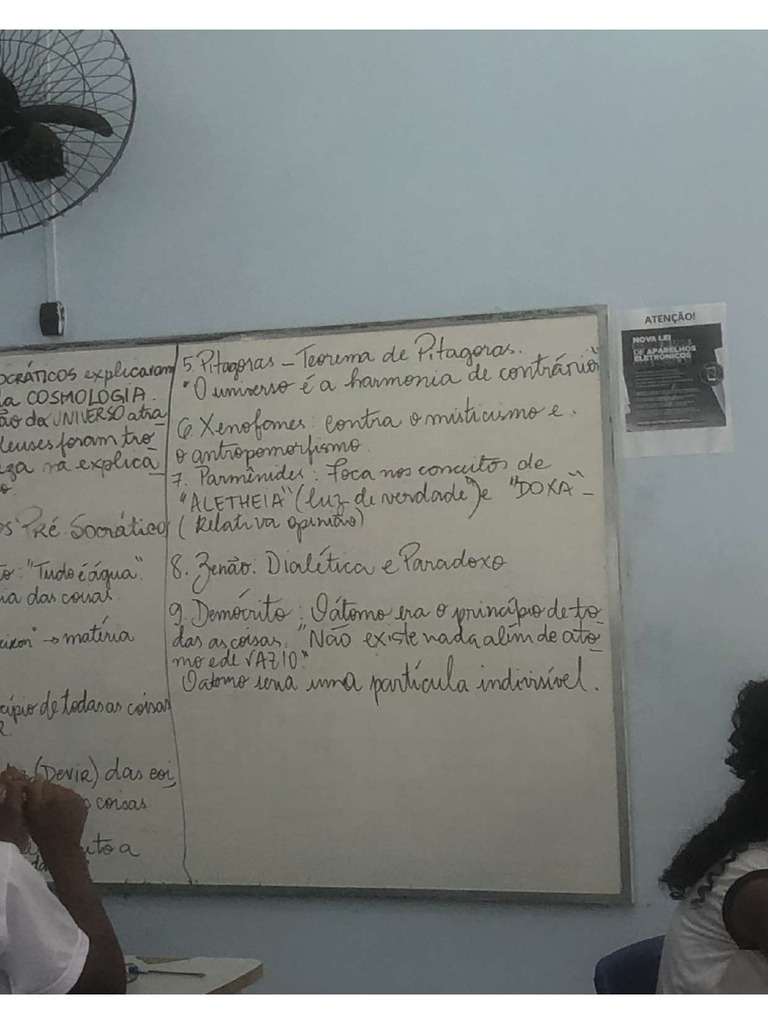 OCRÁTICOS explicaram
la COSMOLOGIA.
ão da UNIVERSO atra
deuses foram tro
eza na explica
o.
os Pré Socrático
to: "Tudo é água".
ia das coisas
eiron" → matéria
cípio de todas as coisas
R.
(Devir) das coi
coisas
uto a
5. Pitagoras – Teorema de Pitagoras.
"O universo é a harmonia de contrários"
6. Xenofomes: contra o misticismo e
o antropomorfismo.
7. Parmênides: Foca nos conceitos de
"ALETHEIA" (luz de verdade) e "DOXA" –
(Relativa opinião)
8. Zenão: Dialética e Paradoxo
9. Demócrito: O átomo era o princípio de to
das as coisas. "Não existe nada além de áto
mo e de VAZIO."
O atomo seria uma partícula indivisível.
ATENÇÃO!
NOVA LEI
DE APARELHOS
ELETRÔNICOS